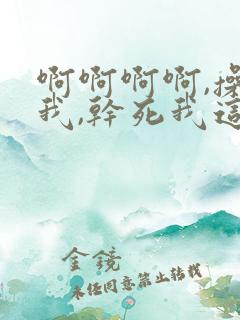 啊啊啊啊,操
我,幹死我這
金鏡
未任同意禁止转载